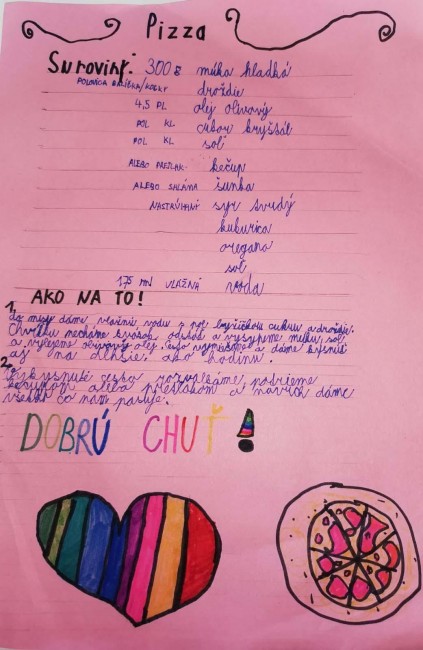 Pizza
Suroviny: 300 g múka hladká
POLOVICA BALÍČKA/KOCKY droždie
4,5 PL olej olivový
POL KL cukor kryštál
POL KL soľ
ALEBO PRETLAK kečup
ALEBO SALÁMA šunka
NASTRÚHANÝ syr tvrdý
kukurica
oregano
soľ
175 ml VLAŽNÁ voda
AKO NA TO!
1. do misy dáme vlažnú vodu s pol lyžičkou cukru a droždie.
Chvíľku necháme kvások odstáť a vysypeme múku, soľ
a vylejeme olivový olej. cesto vymiesime a dáme kysnúť
aj na dlhšie ako hodinu.
2. vykysnuté cesto rozvaľkáme, potrieme
kečupom alebo pretlakom a navrch dáme
všetko čo nám pasuje.
DOBRÚ CHUŤ!